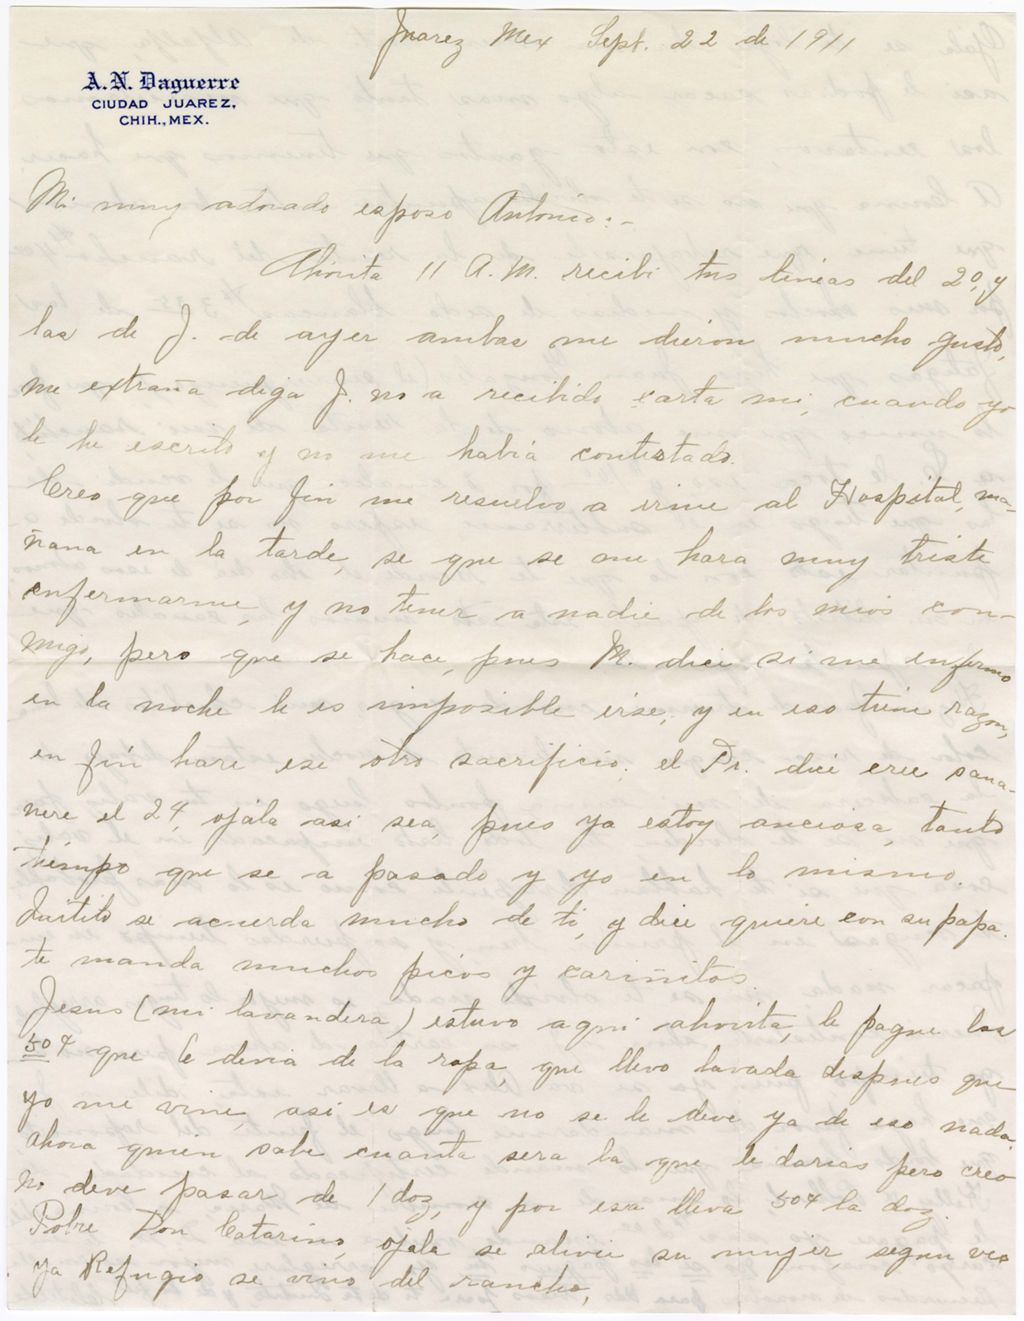 Juarez Mex Sept. 22 de 1911
A. N. Daguerre
CIUDAD JUAREZ,
CHIH., MEX.
Mi muy adorado esposo Antonio:-
Ahorita 11 A.M. recibi tus lineas del 20, y
las de J. de ayer ambas me dieron mucho gusto,
me extraña diga J. no a recibido carta mi, cuando yo
le he escrito y no me había contestado.
Creo que por fin me resuelvo a irme al Hospital, ma-
ñana en la tarde, se que se me hara muy triste
enfermarme, y no tener a nadie de los mios con-
migo, pero que se hace, pues M. dice si me enfermo
en la noche le es imposible irse, y en eso tiene razon,
en fín hare ese otro sacrificio. el Dr. dice cree sana-
re el 24, ojála asi sea, pues ya estoy anciosa, tanto
tiempo que se a pasado y yo en lo mismo.
se acuerda mucho de ti, y dice quiere con su papa.
te manda muchos picos y cariñitos.
Jesus (mi lavandera) estuvo aqui ahorita, le pague los
50¢ que le devia de la ropa, que llevo lavada despues que
yo me vine, asi es que no se le deve ya de eso nada.
ahora quien sabe cuanta sera la que le darias pero creo
no deve pasar de 1 doz, y por esa lleva 50¢ la doz.
Pobre Don Catarino, ojala se alivie su mujer, segun veo
ya Refugio se vino del rancho,